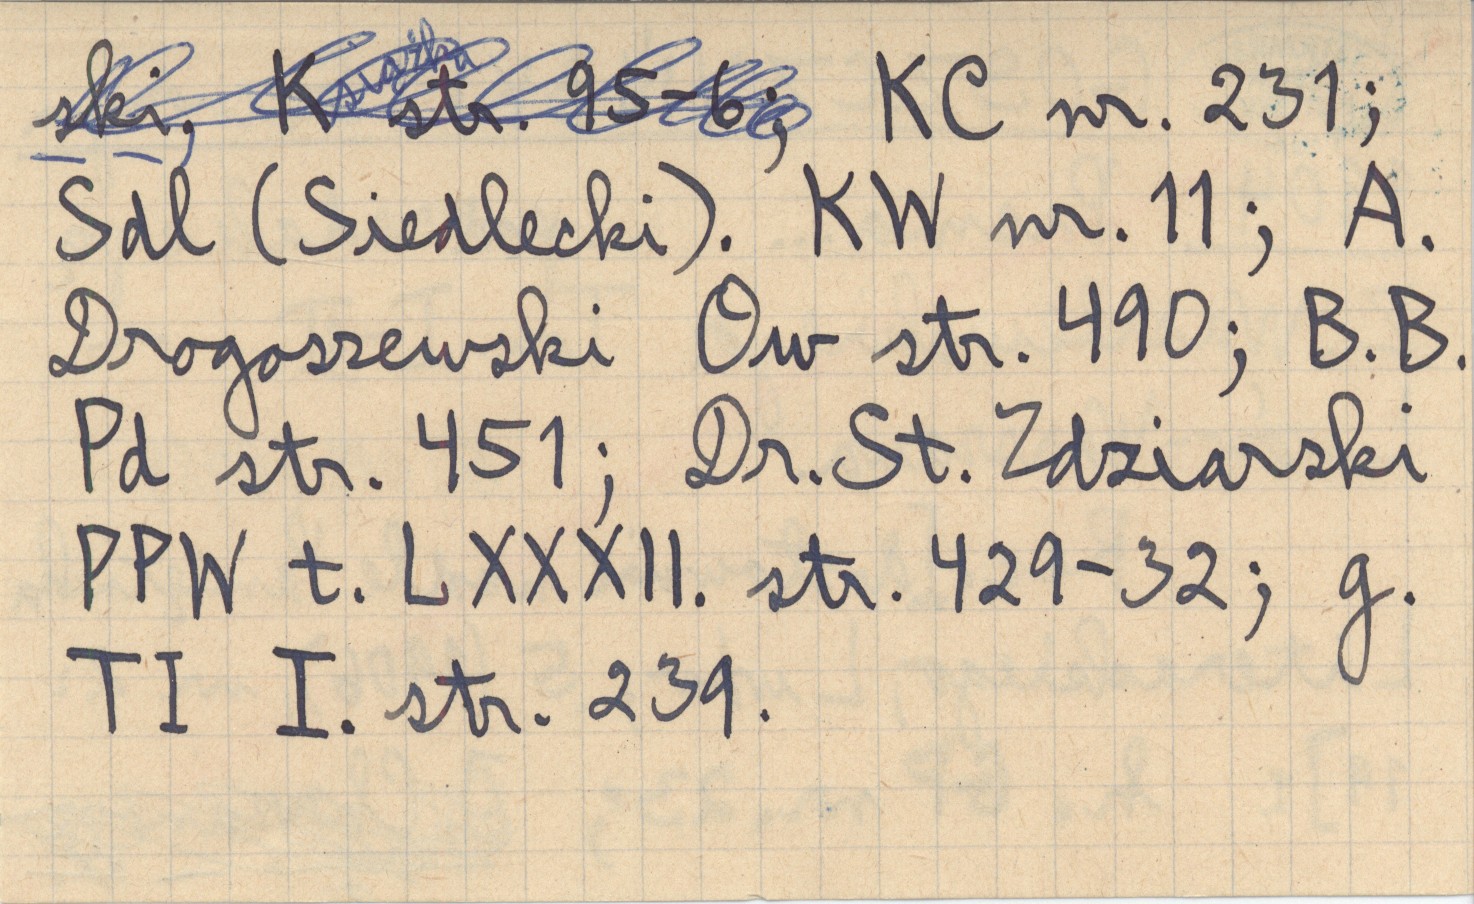 ski, Książka str. 95-6; KC nr. 231;
Sdl (Siedlecki). KW nr. 11; A.
Drogoszewski Ow str. 490; B.B.
Pd str. 451; Dr. St. Zdziarski
PPW t. LXXXII. str. 429-32; g.
TI I. str. 239.